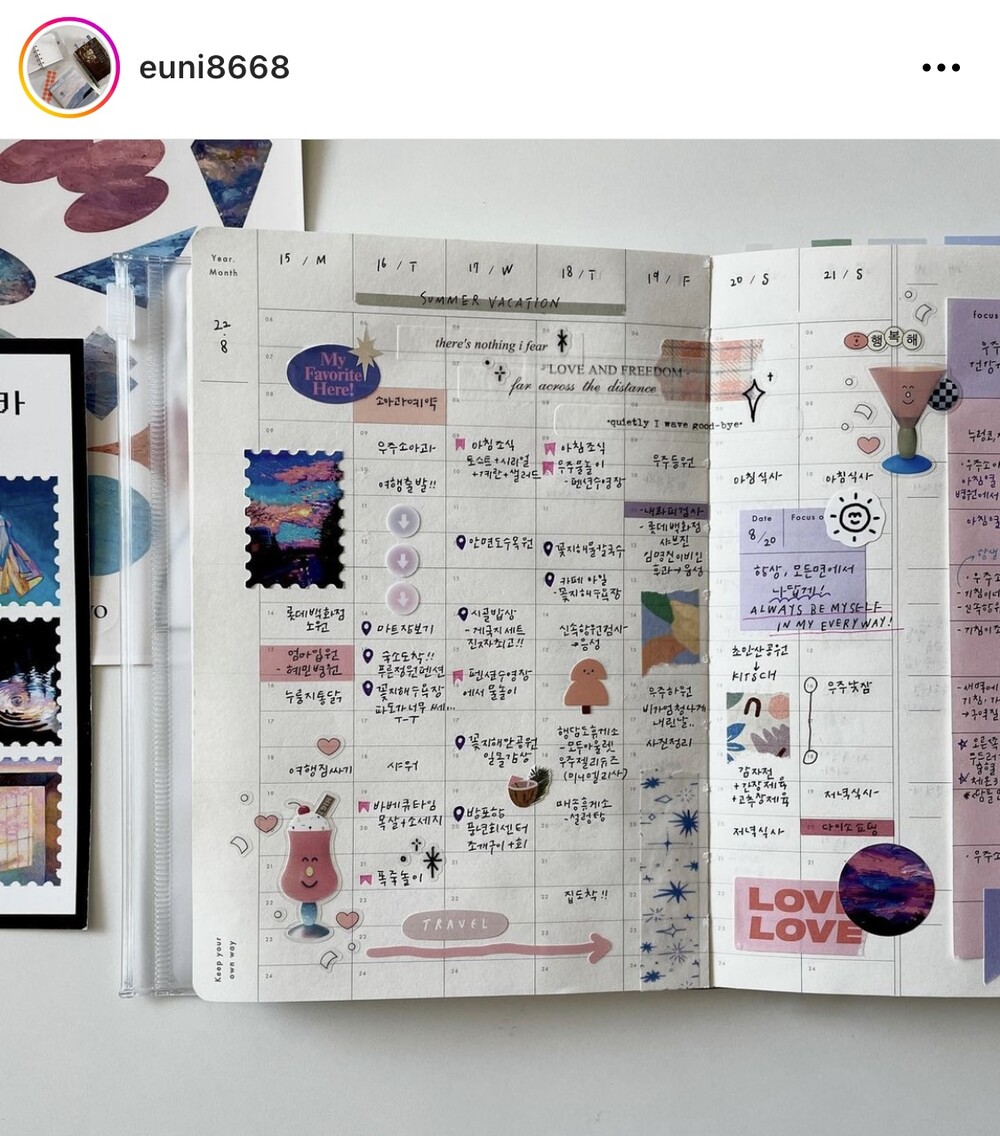 euni8668
카
Year.
Month
22
.
8
15 / M
16 / T
17 / W
18 / T
19 / F
20 / S
21 / S
SUMMER VACATION
My
Favorite
Here!
there's nothing i fear
LOVE AND FREEDOM
far across the distance
·quietly I wave good-bye·
행복해
focus
소아과예약
우주소아과
여행출발!!
롯데백화점
노원
엄마입원
- 혜민병원
누룽지통닭
여행짐싸기
마트장보기
숙소도착!!
푸른정원펜션
꽃지해수욕장
파도가너무 쎄...
ㅜ-ㅜ
샤워
바베큐타임
목살+소세지
폭죽놀이
아침조식
토스트+시리얼
+계란+샐러드
안면도수목원
시골밥상
- 게국지세트
진짜최고!!
펜션수영장
에서 물놀이
꽃지해안공원
일몰감상
방포항
풍년회센터
조개구이+회
아침조식
우주물놀이
- 펜션수영장
꽃지해물칼국수
카페 아일
- 꽃지해수욕장
신속항원검사
→음성
행담도휴게소
- 모두아울렛
우주젤리슈즈
(미니멜리사)
매송휴게소
- 설렁탕
집도착!!
우주등원
- 롯데백화점
샤브진
우주하원
내린날..
사진정리
아침식사
Date
Focus o
8/20
항상, 모든면에서
나답게!
ALWAYS BE MYSELF
IN MY EVERYWAY!
초안산공원
↓
감자전
+간장제육
+고추장제육
저녁식사
LOVE
LOVE
아침식사
우주낮잠
저녁식사
다이소쇼핑
TRAVEL
Keep your
own way